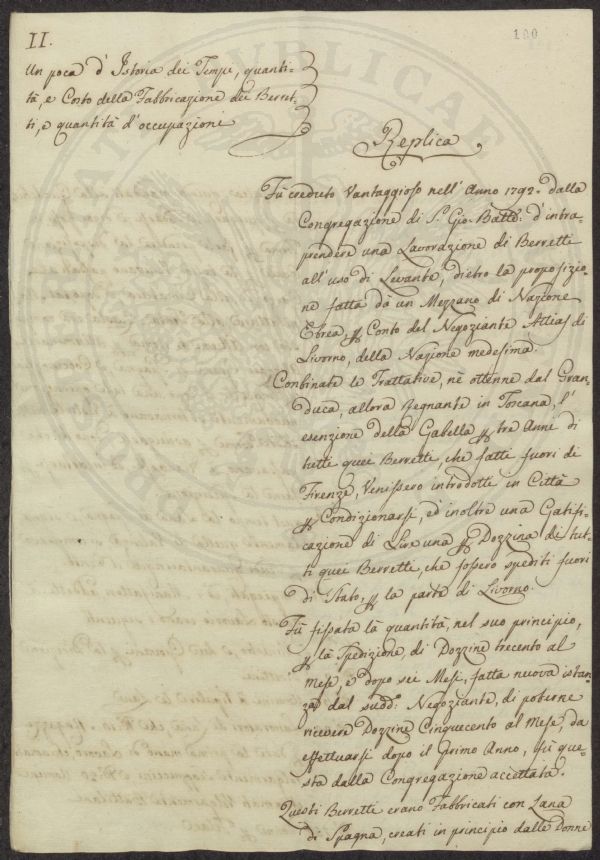 II.
100
Un poca d'Istoria dei Tempi, quanti-
tà, e Costo della Fabbricazione dei Berret-
ti, e quantità d'occupazione
Replica
Fù creduto Vantaggioso nell'Anno 1792. dalla
Congregazione di S. Gio. Batt.: d'intra-
prendere una Lavorazione di Berrette
all'uso di Levante, dietro la proposizio-
ne fatta da un Mezzano di Nazione
Ebrea, p Conto del Negoziante Attias di
Livorno, della Nazione medesima.
Combinate le Trattative, nè ottenne dal Gran-
duca, allora regnante in Toscana, l'
esenzione della Gabella p tre Anni di
tutte quei Berrette, che fatte fuori di
Firenze, Venissero introdotte in Città
p Condizionarsi, ed inoltre una Gatifi-
cazione di Lire una p Dozzina di tut-
ti quei Berrette, che fossero spediti fuori
di Stato, p la parte di Livorno.
Fù fissata la quantità, nel suo principio,
p là Spedizione, di Dozzine trecento al
Mese, e dopo sei Mesi, fatta nuova istan-
za dal sudd: Negoziante, di poterne
ricevere Dozzine Cinquecento al Mese, da
effettuarsi dopo il primo Anno, fù que-
sta dalla Congregazione accettata.
Questi Berrette erano Fabbricati con Lana
di Spagna, creati in principio dalle Donne